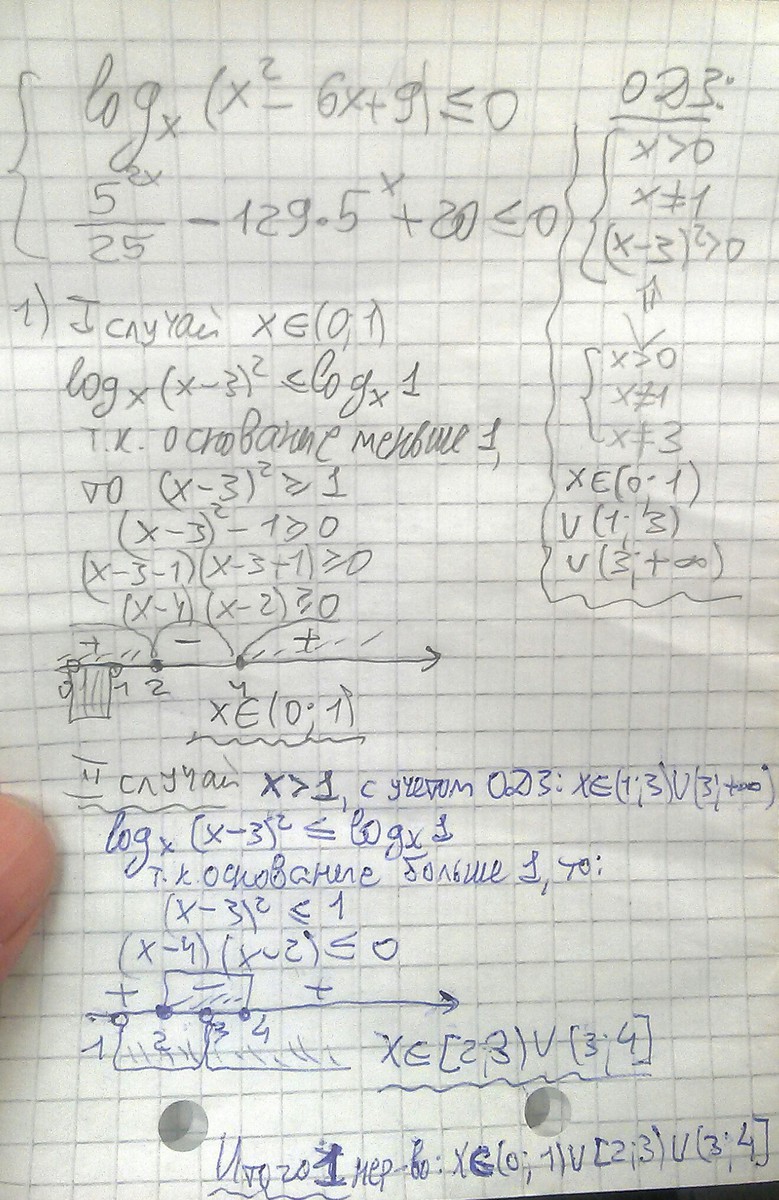 log_x (x² - 6x+9) ≤ 0
5^{2x}/25 - 129·5^x + 20 ≤ 0
ОДЗ:
x>0
x≠1
(x-3)²>0
⇕
x>0
x≠1
x≠3
x∈(0;1)
∪(1;3)
∪(3;+∞)
1) I случай x∈(0;1)
log_x (x-3)² ≤ log_x 1
т.к. основание меньше 1,
то (x-3)² ≥ 1
(x-3)² - 1 ≥ 0
(x-3-1)(x-3+1) ≥ 0
(x-4)(x-2) ≥ 0
+ - +
0 1 2 4
x∈(0;1)
II случай x>1, с учетом ОДЗ: x∈(1;3)∪(3;+∞)
log_x (x-3)² ≤ log_x 1
т.к. основание больше 1, то:
(x-3)² ≤ 1
(x-4)(x-2) ≤ 0
+ - +
1 2 3 4
x∈[2;3)∪(3;4]
Итого 1 нер-во: x∈(0;1)∪[2;3)∪(3;4]